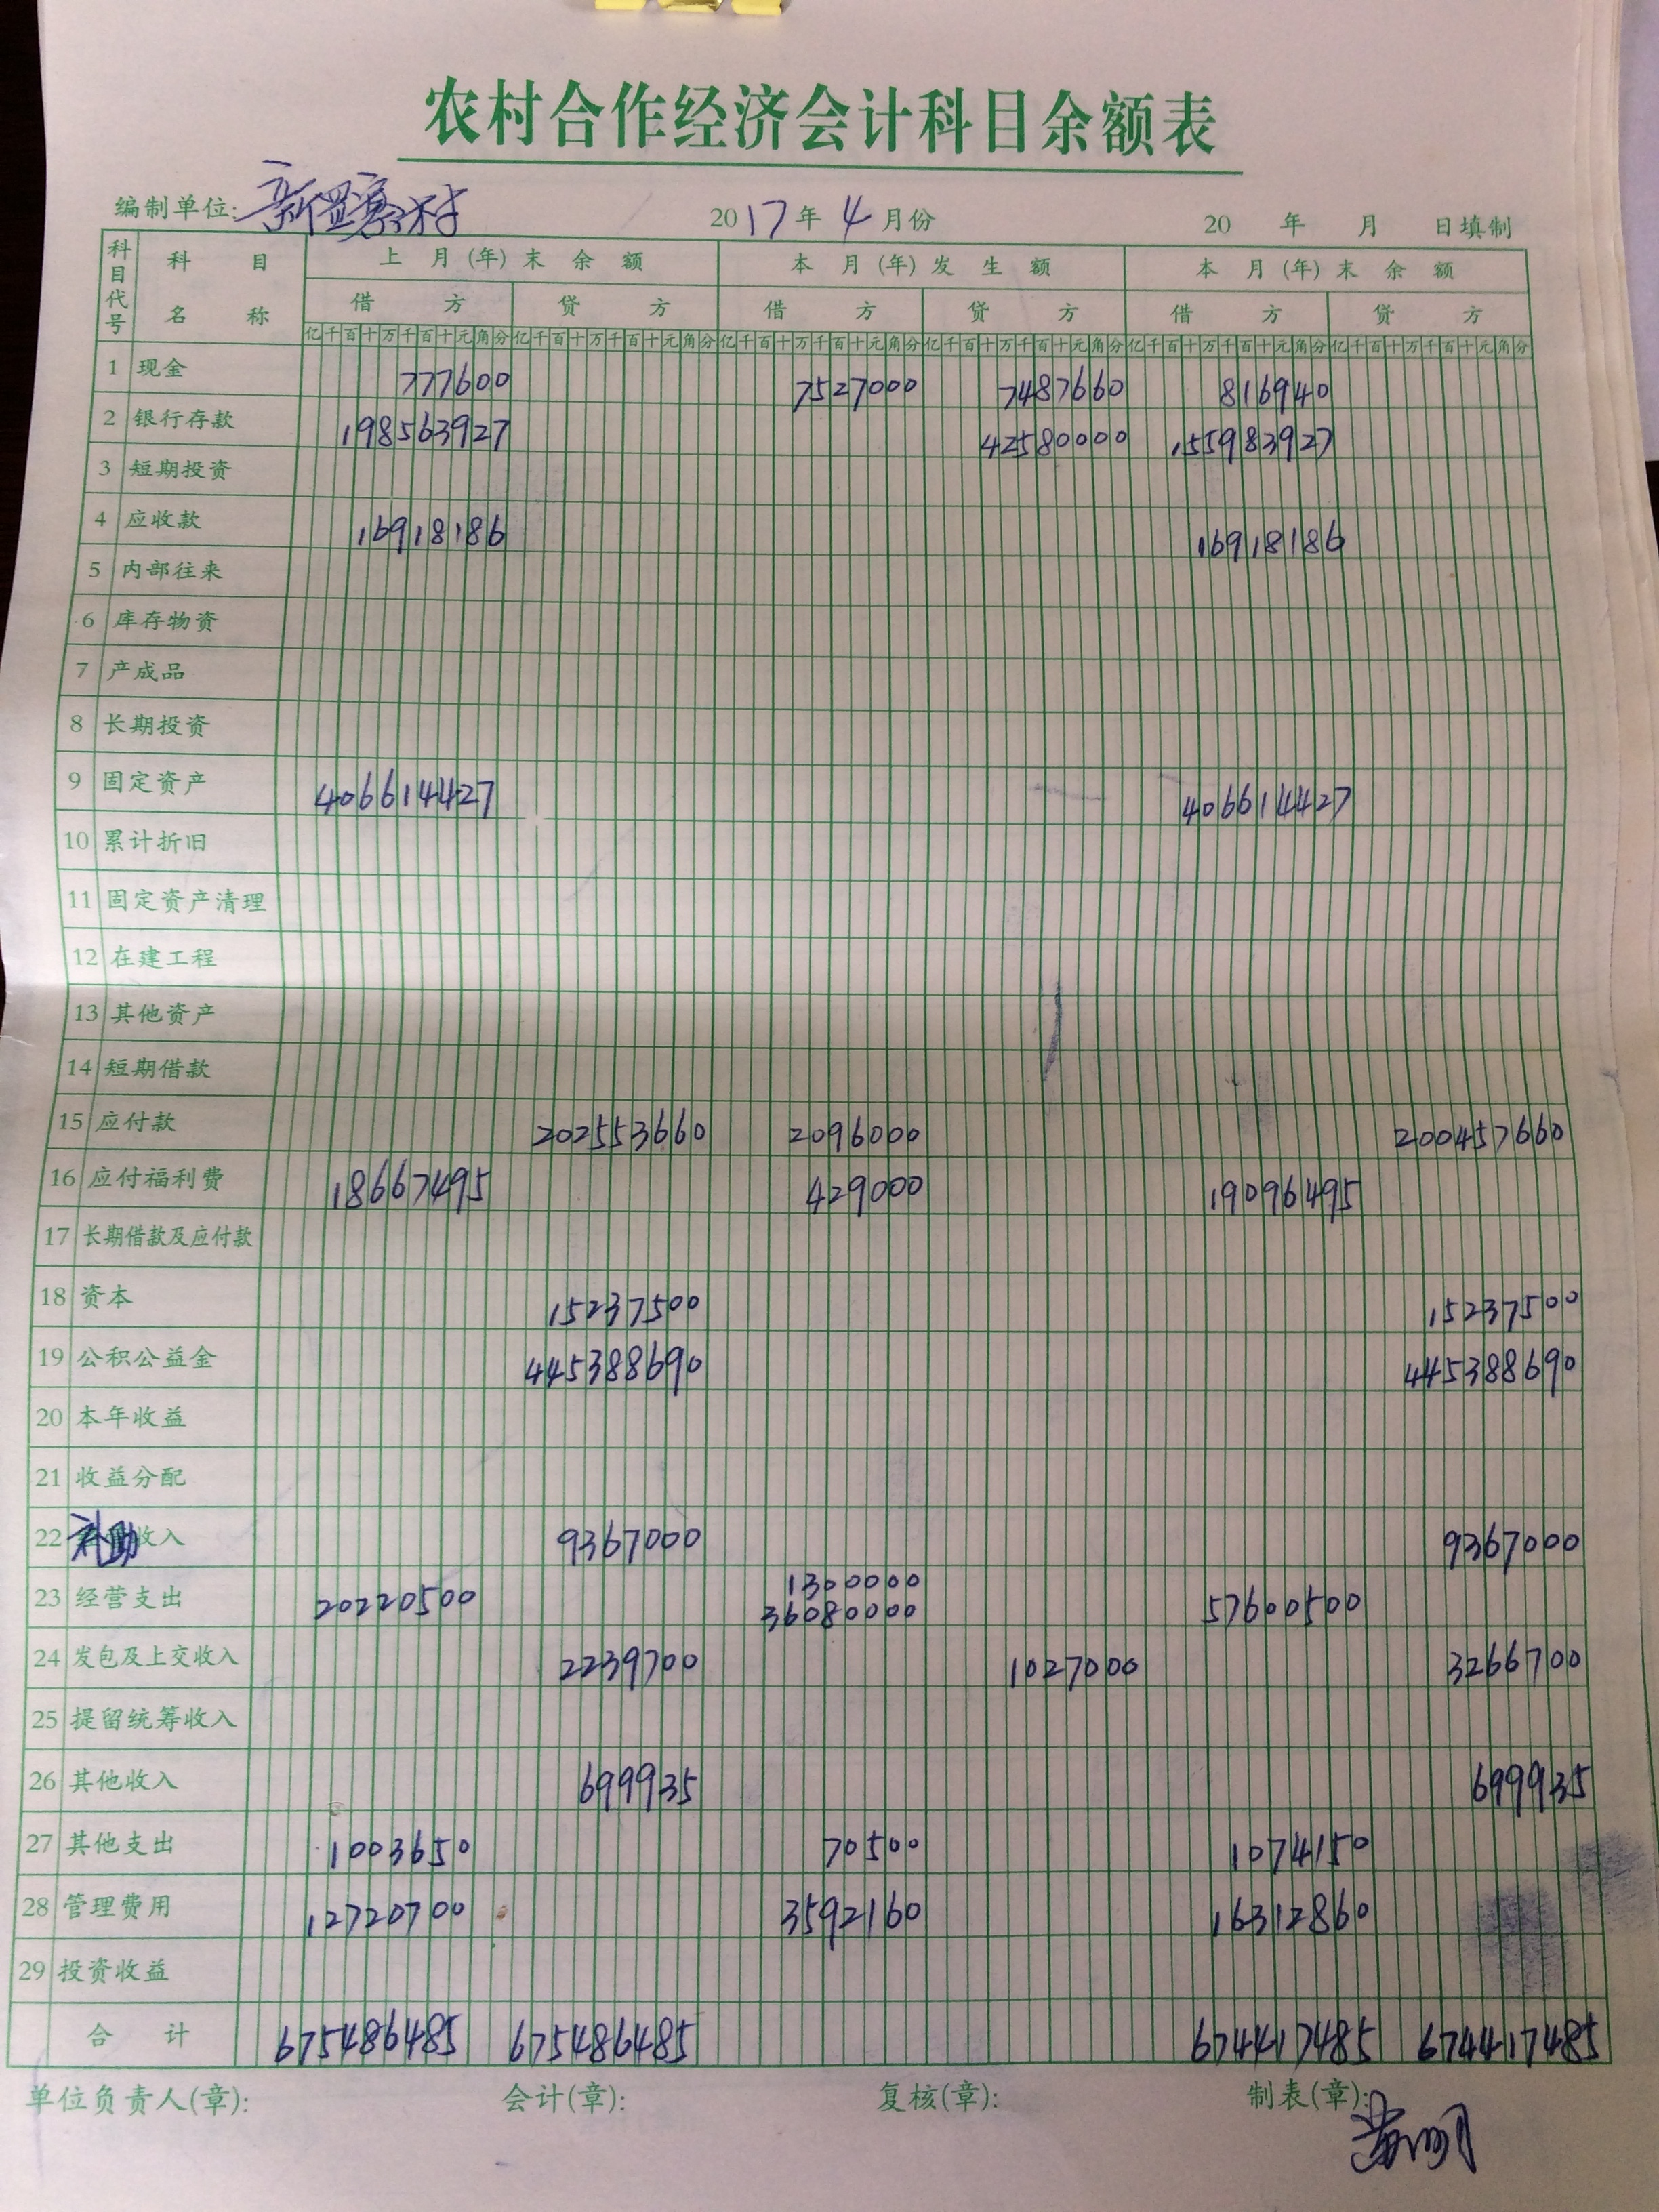 农村合作经济会计科目余额表
编制单位: 新置寨村 2017年4月份 20 年 月 日填制
科目代号 科目名称 上月(年)末余额 本月(年)发生额 本月(年)末余额
借方 贷方 借方 贷方 借方 贷方
亿千百十万千百十元角分 亿千百十万千百十元角分 亿千百十万千百十元角分 亿千百十万千百十元角分 亿千百十万千百十元角分 亿千百十万千百十元角分
1 现金 777600 7527000 7487660 816940
2 银行存款 198563927 42580000 155983927
3 短期投资
4 应收款 16918186 16918186
5 内部往来
6 库存物资
7 产成品
8 长期投资
9 固定资产 406614427 406614427
10 累计折旧
11 固定资产清理
12 在建工程
13 其他资产
14 短期借款
15 应付款 202553660 2096000 200457660
16 应付福利费 18667495 429000 19096495
17 长期借款及应付款
18 资本 15237500 15237500
19 公积公益金 445388690 445388690
20 本年收益
21 收益分配
22 补助收入 9367000 9367000
1300000
23 经营支出 20220500 36080000 57600500
24 发包及上交收入 2239700 1027000 3266700
25 提留统筹收入
26 其他收入 699935 699935
27 其他支出 1003650 70500 1074150
28 管理费用 12720700 3592160 16312860
29 投资收益
合计 675486485 675486485 674417485 674417485
单位负责人(章): 会计(章): 复核(章): 制表(章):